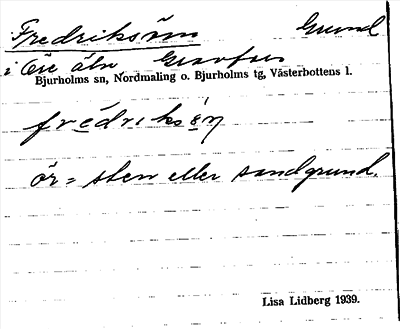 Fredriksörn Grund
i Öre älv
Bjurholms sn, Nordmaling o. Bjurholms tg, Västerbottens l.
ör = sten eller sandgrund.
Lisa Lidberg 1939.